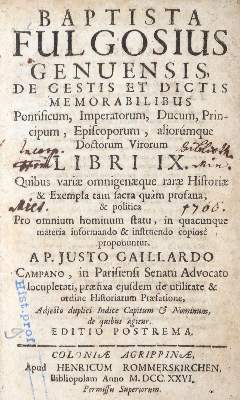 BAPTISTA
FULGOSIUS
GENUENSIS,
DE GESTIS ET DICTIS
MEMORABILIBUS
Pontificum, Imperatorum, Ducum, Prin-
cipum, Episcoporum, aliorúmque
Doctorum Virorum
LIBRI IX.
Quibus variæ omnigenæque raræ Historiæ
& Exempla tam sacra quàm profana,
& politica
Pro omnium hominum statu, in quacunque
materia informando & instruendo copiosè
proponuntur.
A P. JUSTO GAILLARDO
CAMPANO, in Parisiensi Senatu Advocato
locupletati, præfixa ejusdem de utilitate &
ordine Historiarum Præfatione,
Adjecto duplici Indice Capitum & Nominum,
de quibus agitur.
EDITIO POSTREMA.
COLONIÆ AGRIPPINÆ,
Apud HENRICUM ROMMERSKIRCHEN,
Bibliopolam Anno M.DCC.XXVI.
Permissu Superiorum.
Hist. prof.